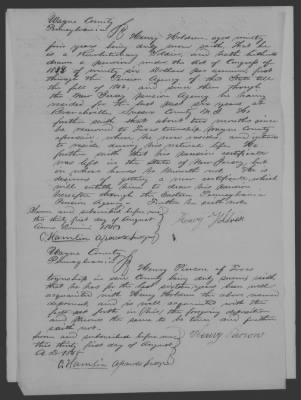 Wayne County
Pennsylvania } SS Henry Holdren, aged ninety
five years being duly sworn saith that he
is a Revolutionary Soldier, and hath hitherto
drawn a pension under the Act of Congress of
of ninety six dollars per annum, first
through the Penna Agency of this State till
the fall of and since then through
the New Jersey Pension Agency he having
resided for the last past six years at
Branchville Sussex County N.J. He
further saith that about two months since
he removed to township, Wayne County
aforesaid, where he now resides and intends
to reside during his natural life. He
further saith that his pension certificate
was left in the State of New Jersey, but
in whose hands he knoweth not. He is
desirous of getting a new certificate which
will entitle him to draw his pension
hereafter through the Eastern Pennsylvania
Pension Agency. Further he saith not.
Sworn and subscribed before me
the thirty first day of August
Anno Domini
E. Hamlin Henry Holdren
Wayne County
Pennsylvania } SS Henry Pierson of
township in said County being duly sworn saith
that he has for the last sixteen years been well
acquainted with Henry Holdren the above named
deponent and is well acquainted with the
facts set forth in the foregoing deposition
and knows the same to be true and further
saith not.
Sworn and subscribed before me
this thirty first day of August
A.D. Henry Pierson
E. Hamlin